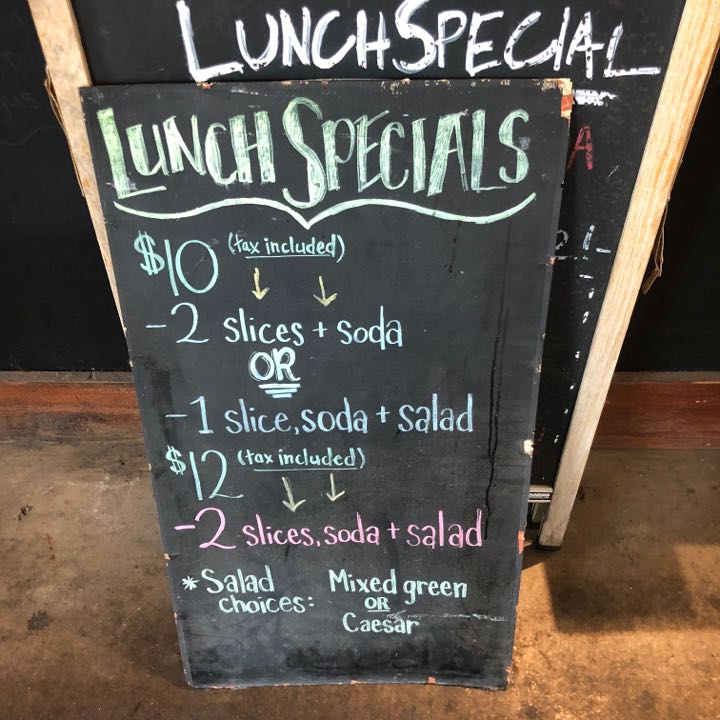 LUNCH SPECIAL
LUNCH SPECIALS
$10 (tax included)
-2 slices + soda
OR
-1 slice, soda + salad
$12 (tax included)
-2 slices, soda + salad
* Salad choices: Mixed green
OR
Caesar